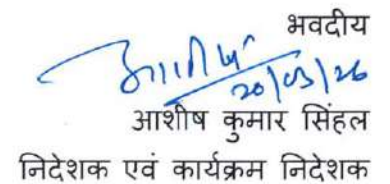 भवदीय
20/03/26
आशीष कुमार सिंहल
निदेशक एवं कार्यक्रम निदेशक